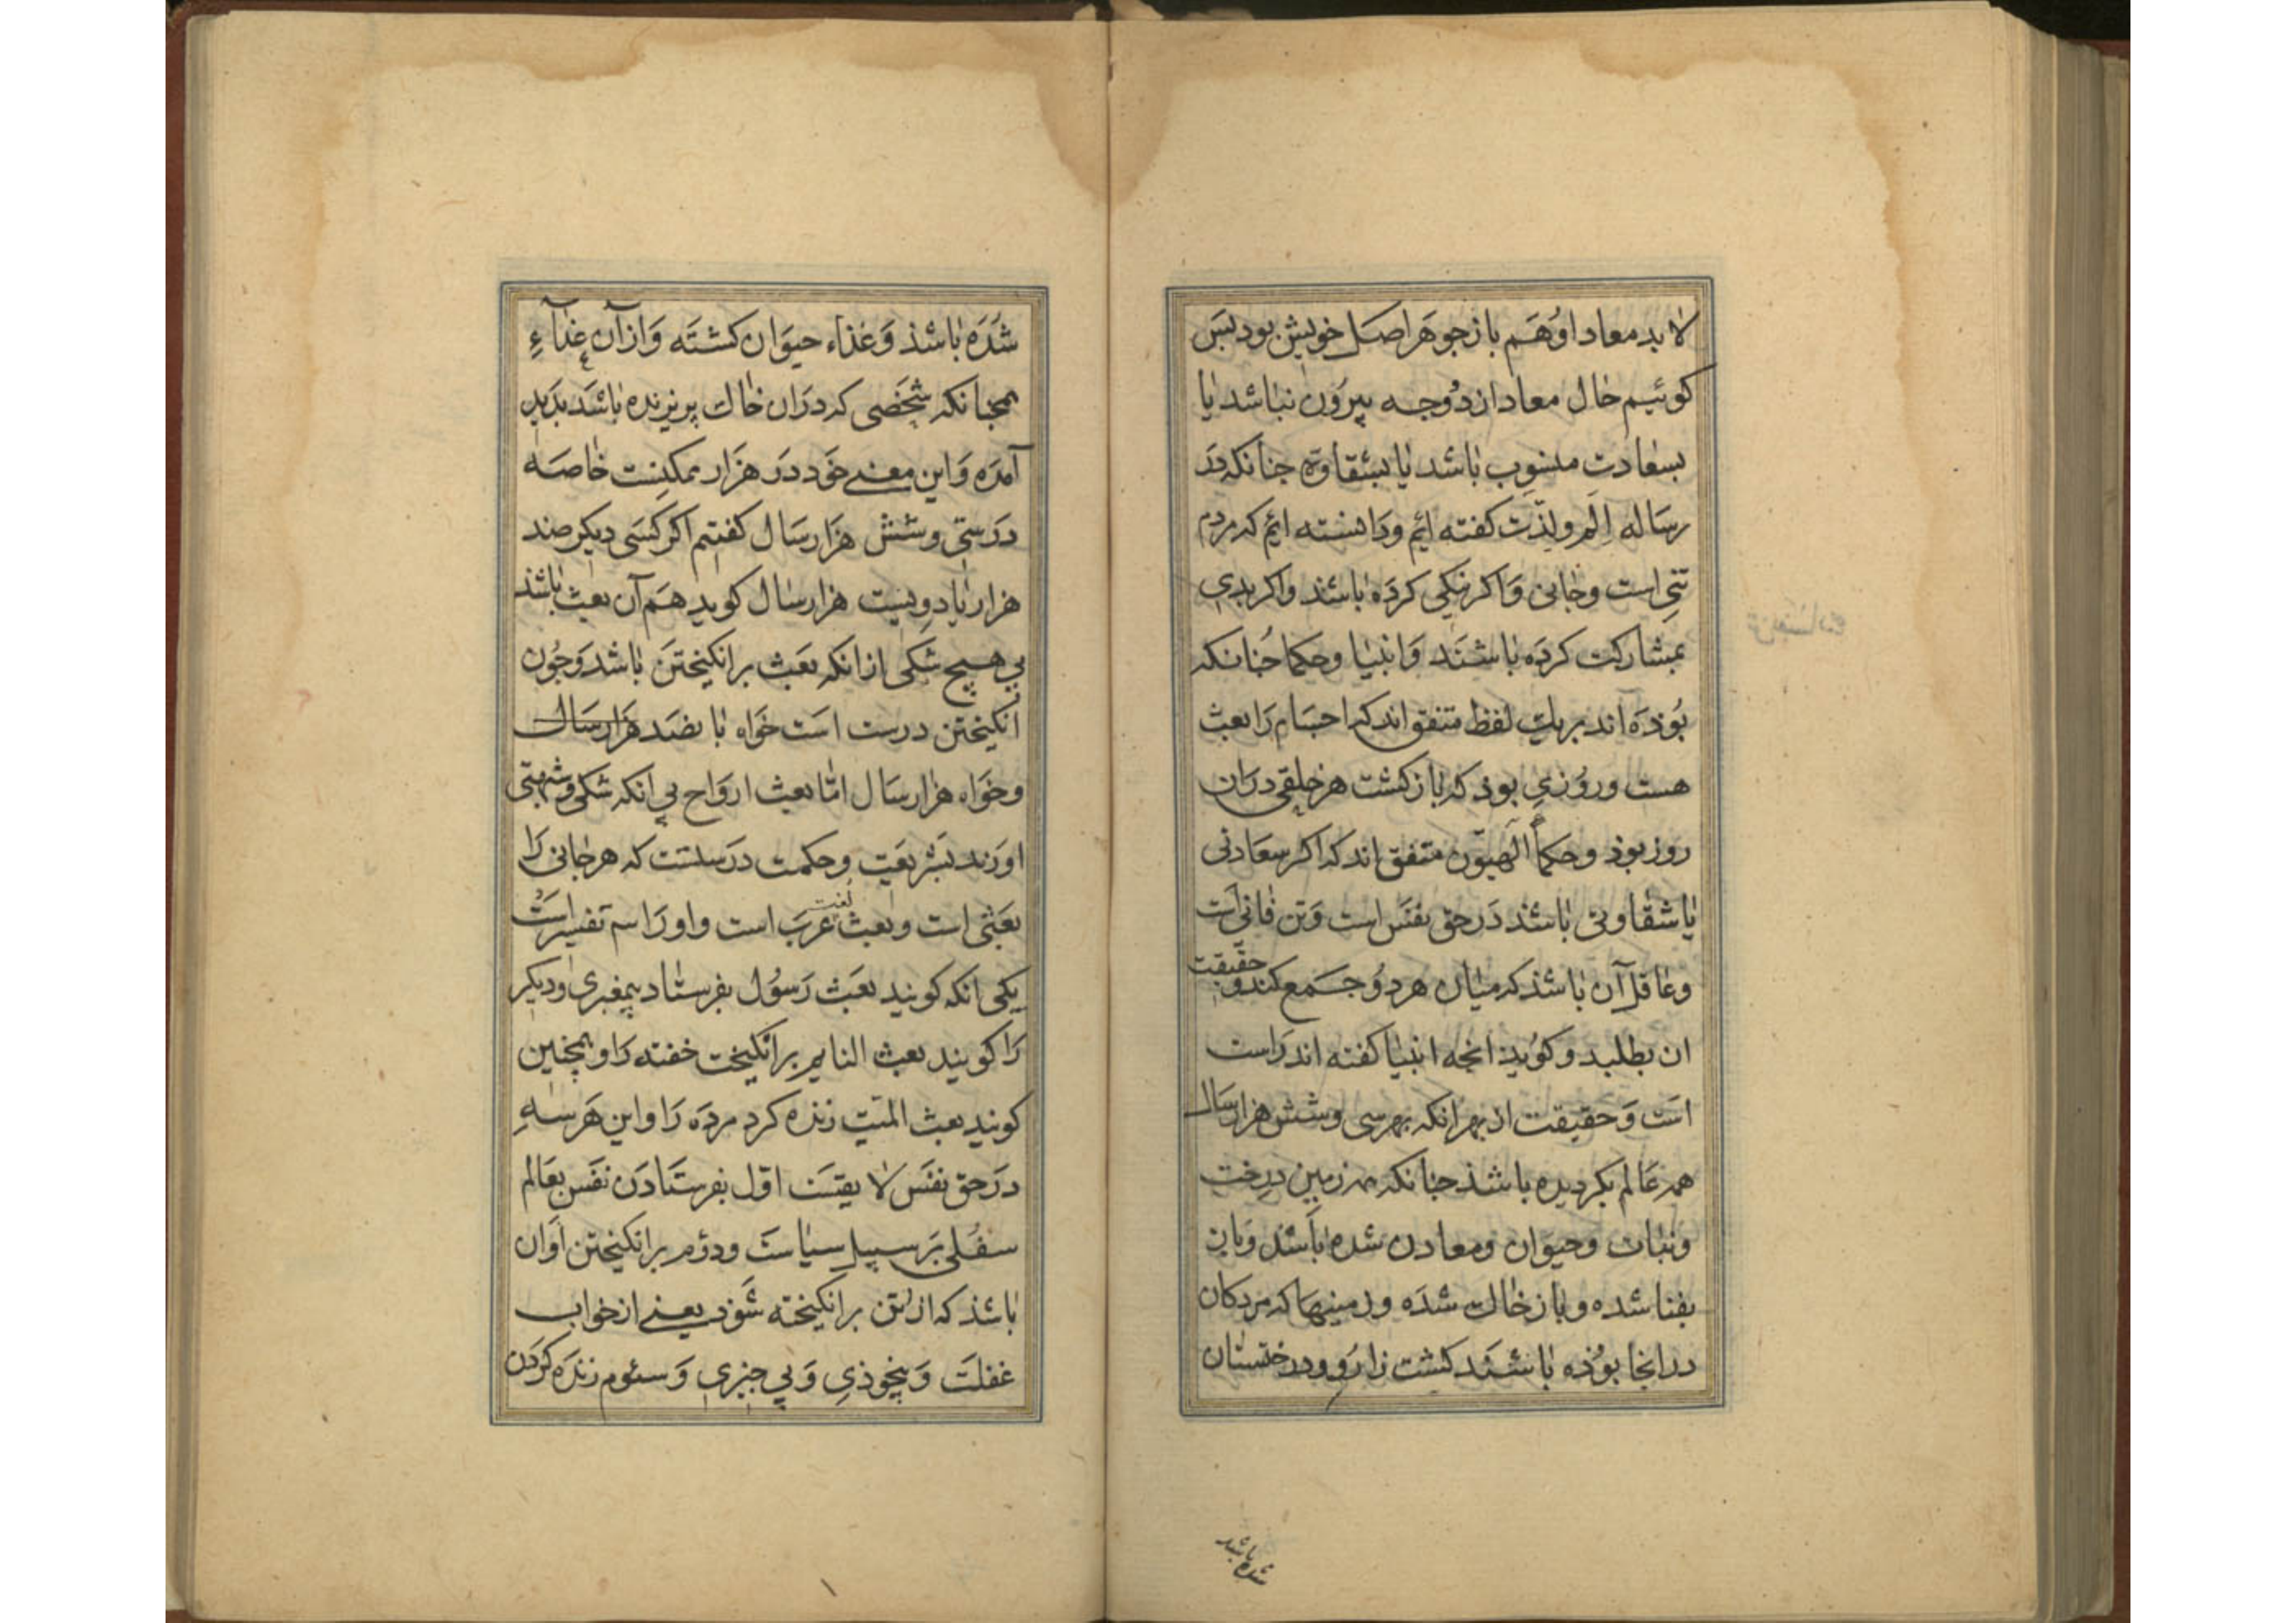 لا بد معاد او هم باز جوهر اصل خویش بود پس
کوئیم حال معاد از دو وجه بیرون نباشد یا
بسعادت منسوب باشد یا بشقاوة جنانکه در
رساله الم ولذت کفته ایم ودانسته ایم که مردم
تنی است وجانی واکر نیکی کرده باشند واکر بدی
بمشارکت کرده باشند وانبیا وحکما جنانکه
بوذه اند بریک لفظ متفق اند که اجسام را بعث
هست وروزی بوذ که بازکشت هر خلقی دران
روز بوذ وحکمأ الهیون متفق اند که اکر سعادتی
یا شقاوتی باشذ در حق نفس است وتن فانی است
وعاقل آن باشذ که میان هر دو جمع کند وحقیقت
ان بطلبد وکویذ انجه انبیا کفته اند راست
است وحقیقت از بهر انکه بهر سی وشش هزار سال
همه عالم بکردیده باشذ جنانکه همه زمین درخت
ونبات وحیوان ومعادن شده باشذ وباز
بفنا شده وباز خاک شده وزمینها که مردکان
درانجا بوذه باشند کشت زار و ودرختستان
شده باشد
شده باشذ وغذاء حیوان کشته وازآن غذآء
همجنانکه شخصی که دران خاک بریزیده باشد بدید
آمده واین معنی خود در هزار ممکنست خاصه
در سی وشش هزار سال کفتیم اکر کسی دیکر صد
هزار یا دویست هزار سال کوید هم آن بعث باشذ
بی هیچ شکی ازانکه بعث برانکیختن باشد وجون
انکیختن درست است خواه بانصد هزار سال
وخواه هزار سال امّا بعث ارواح بی انکه شکی وشبهتی
اورند بشریعت وحکمت درستست که هر جانی را
بعثی است وبعث لغت عرب است واو را سه تفسیرست
یکی انکه کویند بعث رسول بفرستاد پیغمبری ودیکر
را کویند بعث النایم برانکیخت خفته را وهمجنین
کویند بعث المیّت زنده کرد مرده را واین هر سه
در حق نفس لا یقست اوّل بفرستادن نفس بعالم
سفلی بر سبیل سیاست ودوم برانکیختن اوان
باشذ که از تن برانکیخته شوذ یعنی از خواب
غفلت وبیخوذی وبی خبری وسئوم زنده کردن